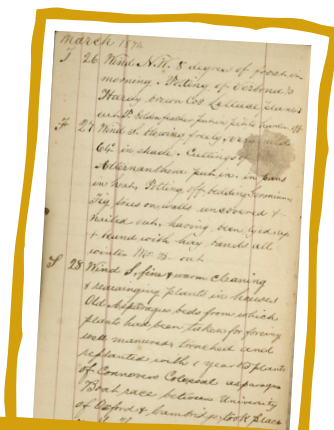 March 1874
T 26 Wind N.W. 8 degrees of frost in
morning. Potting of Verbena's
Hardy brown Cos Lettuce plants
out.
F 27 Wind S. blowing freely, very mild
64° in shade. Cuttings of
Alternanthera put in, in pans
in heat, Potting off bedding Geraniums
Fig trees on walls uncovered &
nailed out, having been tied up
& bound with hay bands all
winter
S 28 Wind S, fine & warm cleaning
& rearranging plants in houses
Old Asparagus beds from which
plants had been taken for forcing
well manured, trenched and
replanted with 1 year old plants
of Connovers Colossal asparagus
Boat race between University
of Oxford & Cambridge, took place